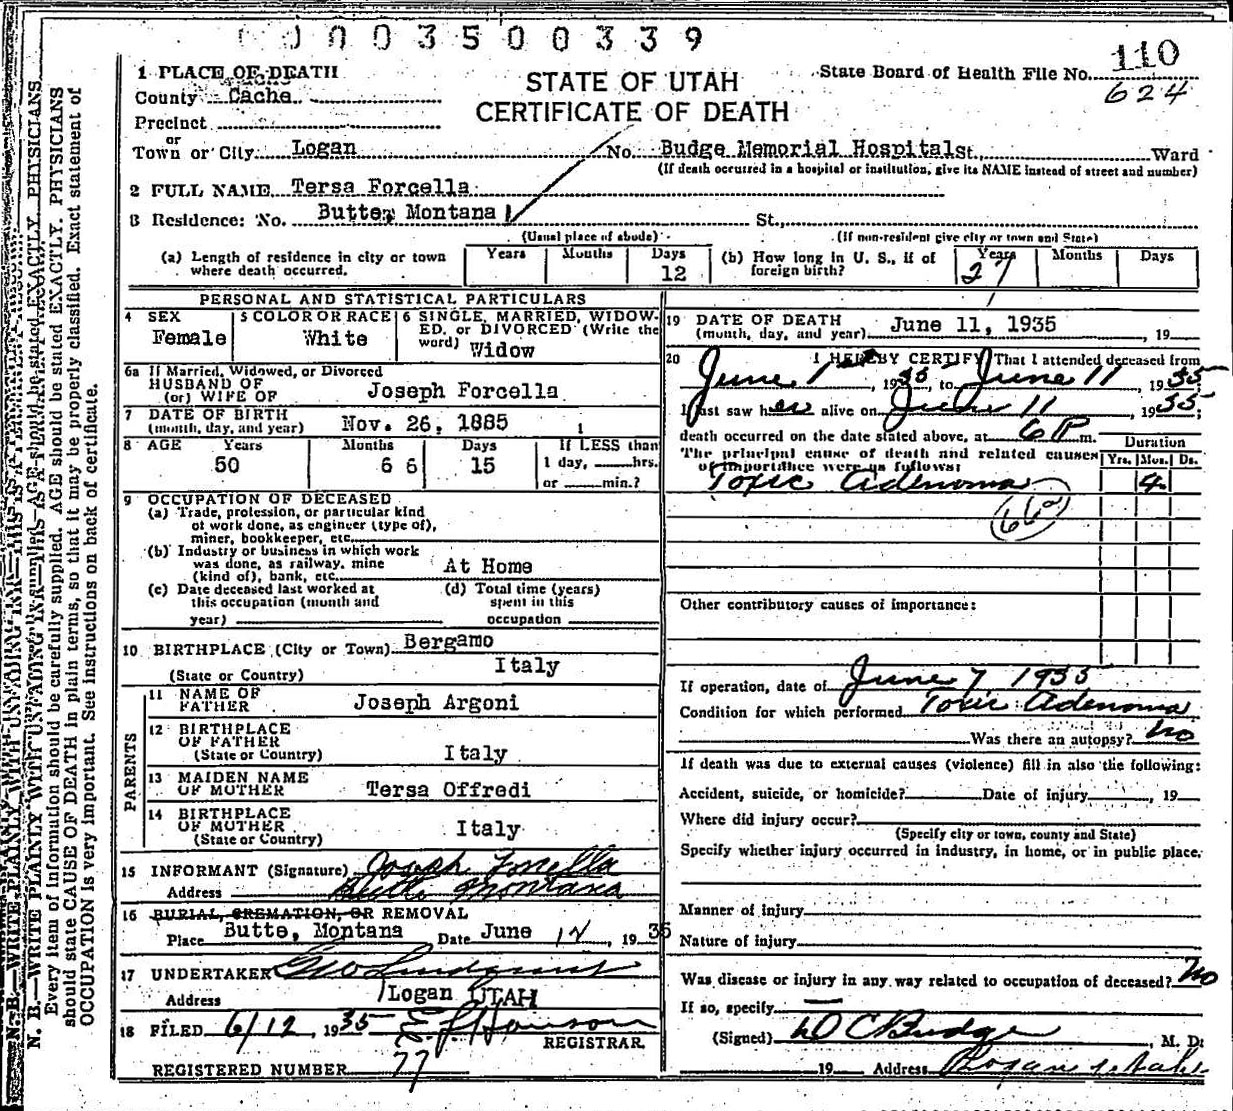 0003500339
110
624
1 PLACE OF DEATH
County Cache
Precinct
or
Town or City Logan No. Budge Memorial Hospital St., Ward
STATE OF UTAH
CERTIFICATE OF DEATH
State Board of Health File No.
(If death occurred in a hospital or institution, give its NAME instead of street and number)
2 FULL NAME Tersa Forcella
3 Residence: No. Butte, Montana St.,
(Usual place of abode) (If non-resident give city or town and State)
(a) Length of residence in city or town where death occurred. Years Months Days 12
(b) How long in U. S., if of foreign birth? Years 27 Months Days
PERSONAL AND STATISTICAL PARTICULARS
4 SEX Female
5 COLOR OR RACE White
6 SINGLE, MARRIED, WIDOW-
ED, or DIVORCED (Write the
word) Widow
6a If Married, Widowed, or Divorced
HUSBAND OF
(or) WIFE OF Joseph Forcella
7 DATE OF BIRTH
(month, day, and year) Nov. 26, 1885
8 AGE Years Months Days If LESS than
50 6 6 15 1 day, hrs.
or min.?
9 OCCUPATION OF DECEASED
(a) Trade, profession, or particular kind
of work done, as engineer (type of),
miner, bookkeeper, etc.
(b) Industry or business in which work
was done, as railway, mine
(kind of), bank, etc. At Home
(c) Date deceased last worked at
this occupation (month and
year)
(d) Total time (years)
spent in this
occupation
10 BIRTHPLACE (City or Town) Bergamo
(State or Country) Italy
PARENTS
11 NAME OF
FATHER Joseph Argoni
12 BIRTHPLACE
OF FATHER
(State or Country) Italy
13 MAIDEN NAME
OF MOTHER Tersa Offredi
14 BIRTHPLACE
OF MOTHER
(State or Country) Italy
15 INFORMANT (Signature) Joseph Forcella
Address Butte Montana
16 BURIAL, CREMATION, OR REMOVAL
Place Butte, Montana Date June 12, 1935
17 UNDERTAKER Lindquist
Address Logan UTAH
18 FILED 6/12, 1935
REGISTRAR
REGISTERED NUMBER 77
19 DATE OF DEATH
(month, day, and year) June 11, 1935, 19
20 I HEREBY CERTIFY That I attended deceased from
June 1, 1935, to June 11, 1935
I last saw her alive on June 11, 1935;
death occurred on the date stated above, at 6 P m.
The principal cause of death and related causes
of importance were as follows:
Duration
Yrs. Mos. Ds.
Toxic adenoma 4
Other contributory causes of importance:
If operation, date of June 7 1935
Condition for which performed Toxic adenoma
Was there an autopsy? No
If death was due to external causes (violence) fill in also the following:
Accident, suicide, or homicide? Date of injury, 19
Where did injury occur?
(Specify city or town, county and State)
Specify whether injury occurred in industry, in home, or in public place.
Manner of injury
Nature of injury
Was disease or injury in any way related to occupation of deceased? No
If so, specify
(Signed) D C Budge, M. D.
19 Address Logan Utah
N. B.—WRITE PLAINLY WITH UNFADING INK—THIS IS A
Every item of information should be carefully supplied. AGE should be stated EXACTLY. PHYSICIANS
should state CAUSE OF DEATH in plain terms, so that it may be properly classified. Exact statement of
OCCUPATION is very important. See instructions on back of certificate.